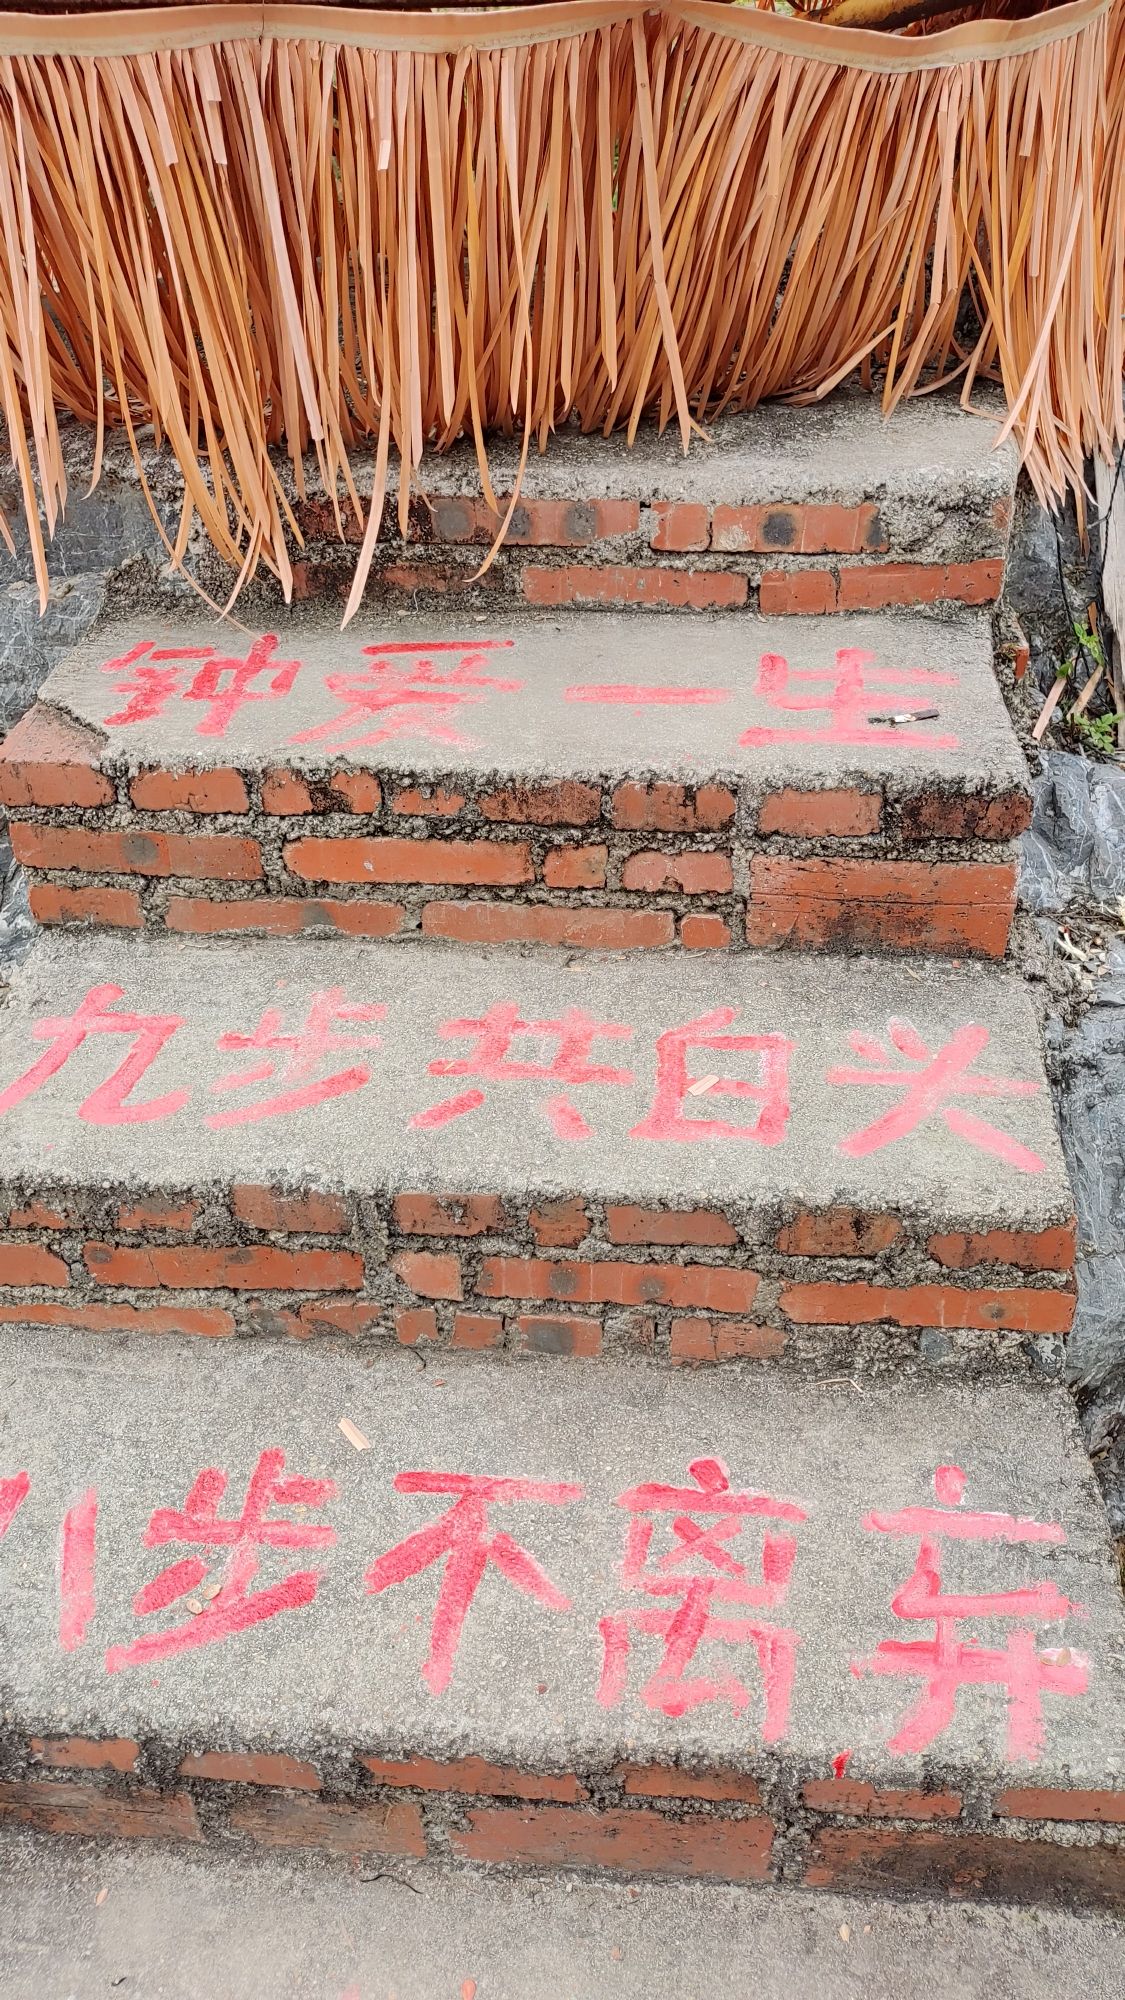 钟爱一生
九步共白头
八步不离弃